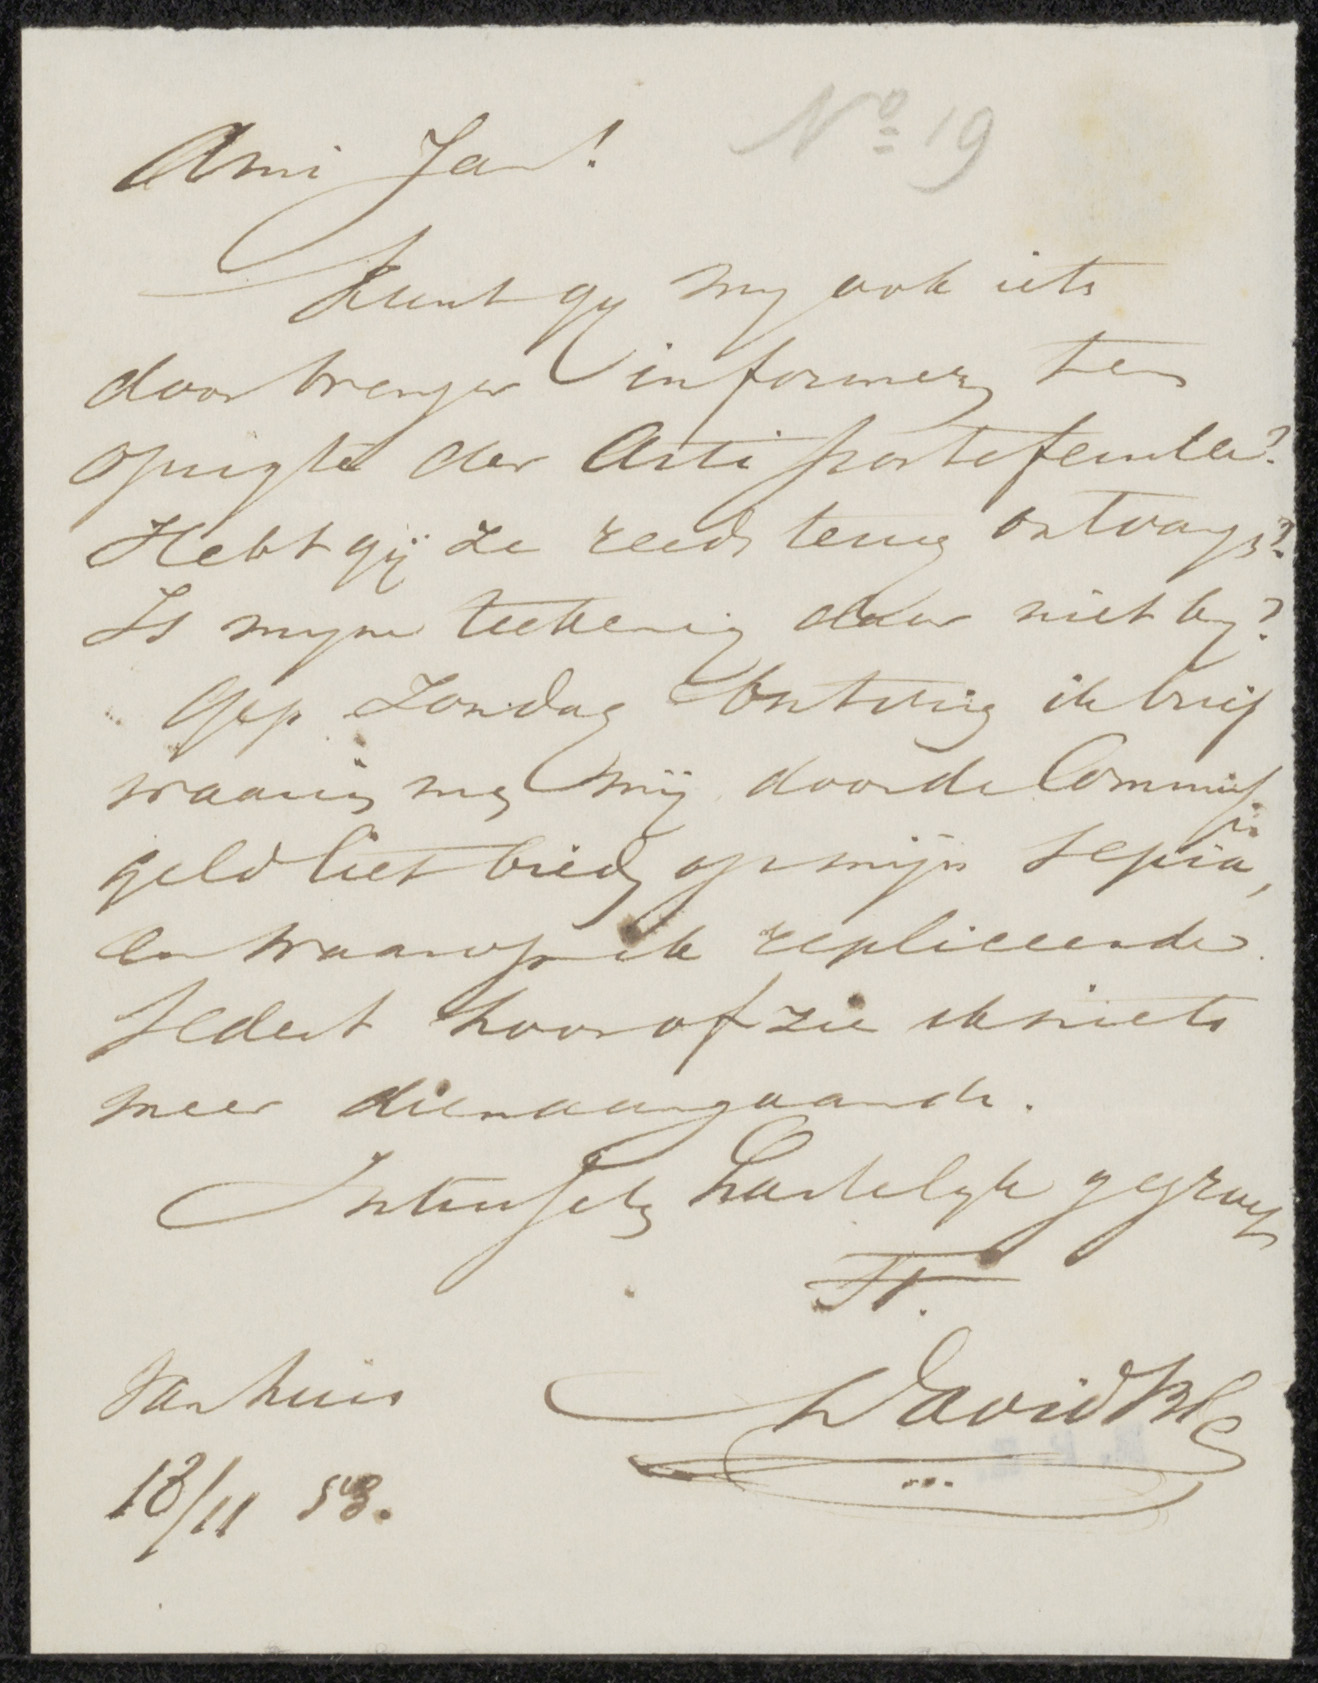 Nº 19
Ami Jan!
Kunt gy my ook iets
door brenger informeren ten
opzigte der Arti portefeuille?
Hebt gij ze reeds terug ontvangen?
Is myne teekening daar niet by?
Gep. Zondag ontving ik brief
waarin men mij door de Commissie
geld liet bieden op mijn sepia,
en waarop ik repliceerde.
Sedert hoor of zie ik niets
meer dienaangaande.
Intusschen hartelyk gegroet
tt.
David Bles
Van huis
18/11 53.